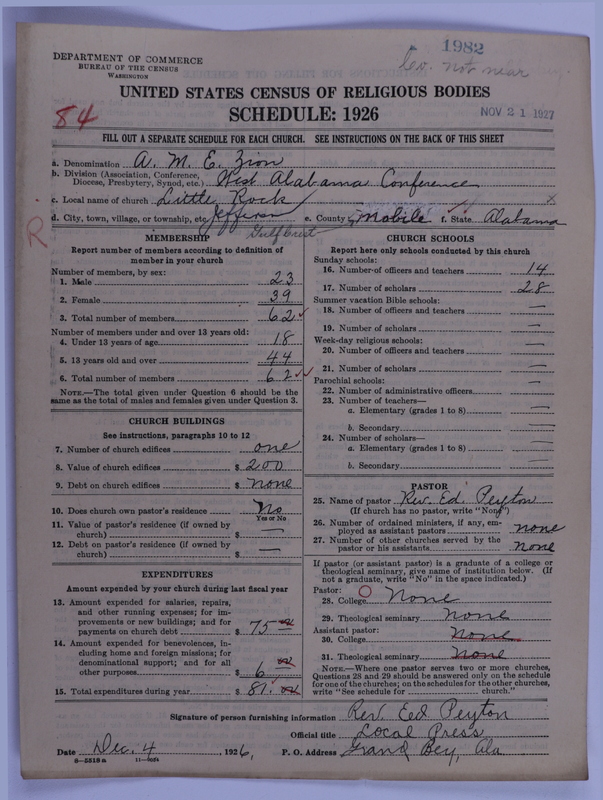 1982
DEPARTMENT OF COMMERCE
BUREAU OF THE CENSUS
WASHINGTON
Geo. not near
UNITED STATES CENSUS OF RELIGIOUS BODIES
84
SCHEDULE: 1926
NOV 21 1927
FILL OUT A SEPARATE SCHEDULE FOR EACH CHURCH. SEE INSTRUCTIONS ON THE BACK OF THIS SHEET
a. Denomination A. M. E. Zion
b. Division (Association, Conference, Diocese, Presbytery, Synod, etc.) West Alabama Conference
c. Local name of church Little Rock x
d. City, town, village, or township, etc. Jefferson e. County Mobile f. State Alabama
R
Gulfcrest
MEMBERSHIP
Report number of members according to definition of
member in your church
Number of members, by sex:
1. Male 23
2. Female 39
3. Total number of members 62
Number of members under and over 13 years old:
4. Under 13 years of age 18
5. 13 years old and over 44
6. Total number of members 62
NOTE.—The total given under Question 6 should be
same as the total of males and females given under Question 3.
CHURCH BUILDINGS
See instructions, paragraphs 10 to 12
7. Number of church edifices one
8. Value of church edifices $ 200
9. Debt on church edifices $ none
10. Does church own pastor's residence No
Yes or No
11. Value of pastor's residence (if owned by
church) $ —
12. Debt on pastor's residence (if owned by
church) $ —
EXPENDITURES
Amount expended by your church during last fiscal year
13. Amount expended for salaries, repairs,
and other running expenses; for im-
provements or new buildings; and for
payments on church debt $ 75
14. Amount expended for benevolences, in-
cluding home and foreign missions; for
denominational support; and for all
other purposes $ 6
15. Total expenditures during year $ 81.
CHURCH SCHOOLS
Report here only schools conducted by this church
Sunday schools:
16. Number of officers and teachers 14
17. Number of scholars 28
Summer vacation Bible schools:
18. Number of officers and teachers —
19. Number of scholars —
Week-day religious schools:
20. Number of officers and teachers —
21. Number of scholars —
Parochial schools:
22. Number of administrative officers —
23. Number of teachers—
a. Elementary (grades 1 to 8) —
b. Secondary —
24. Number of scholars—
a. Elementary (grades 1 to 8) —
b. Secondary —
PASTOR
25. Name of pastor Rev. Ed. Peyton
(If church has no pastor, write "None")
26. Number of ordained ministers, if any, em-
ployed as assistant pastors none
27. Number of other churches served by the
pastor or his assistants none
If pastor (or assistant pastor) is a graduate of a college or
theological seminary, give name of institution below. (If
not a graduate, write "No" in the space indicated.)
Pastor:
28. College None
29. Theological seminary none
Assistant pastor:
30. College None
31. Theological seminary None
NOTE.—Where one pastor serves two or more churches,
Questions 28 and 29 should be answered only on the schedule
for one of the churches; on the schedules for the other churches,
write "See schedule for church."
Signature of person furnishing information Rev. Eed Peyton
Official title Local Press
Date Dec. 4, 1926, P. O. Address Grand Bey, Ala
8—5518a